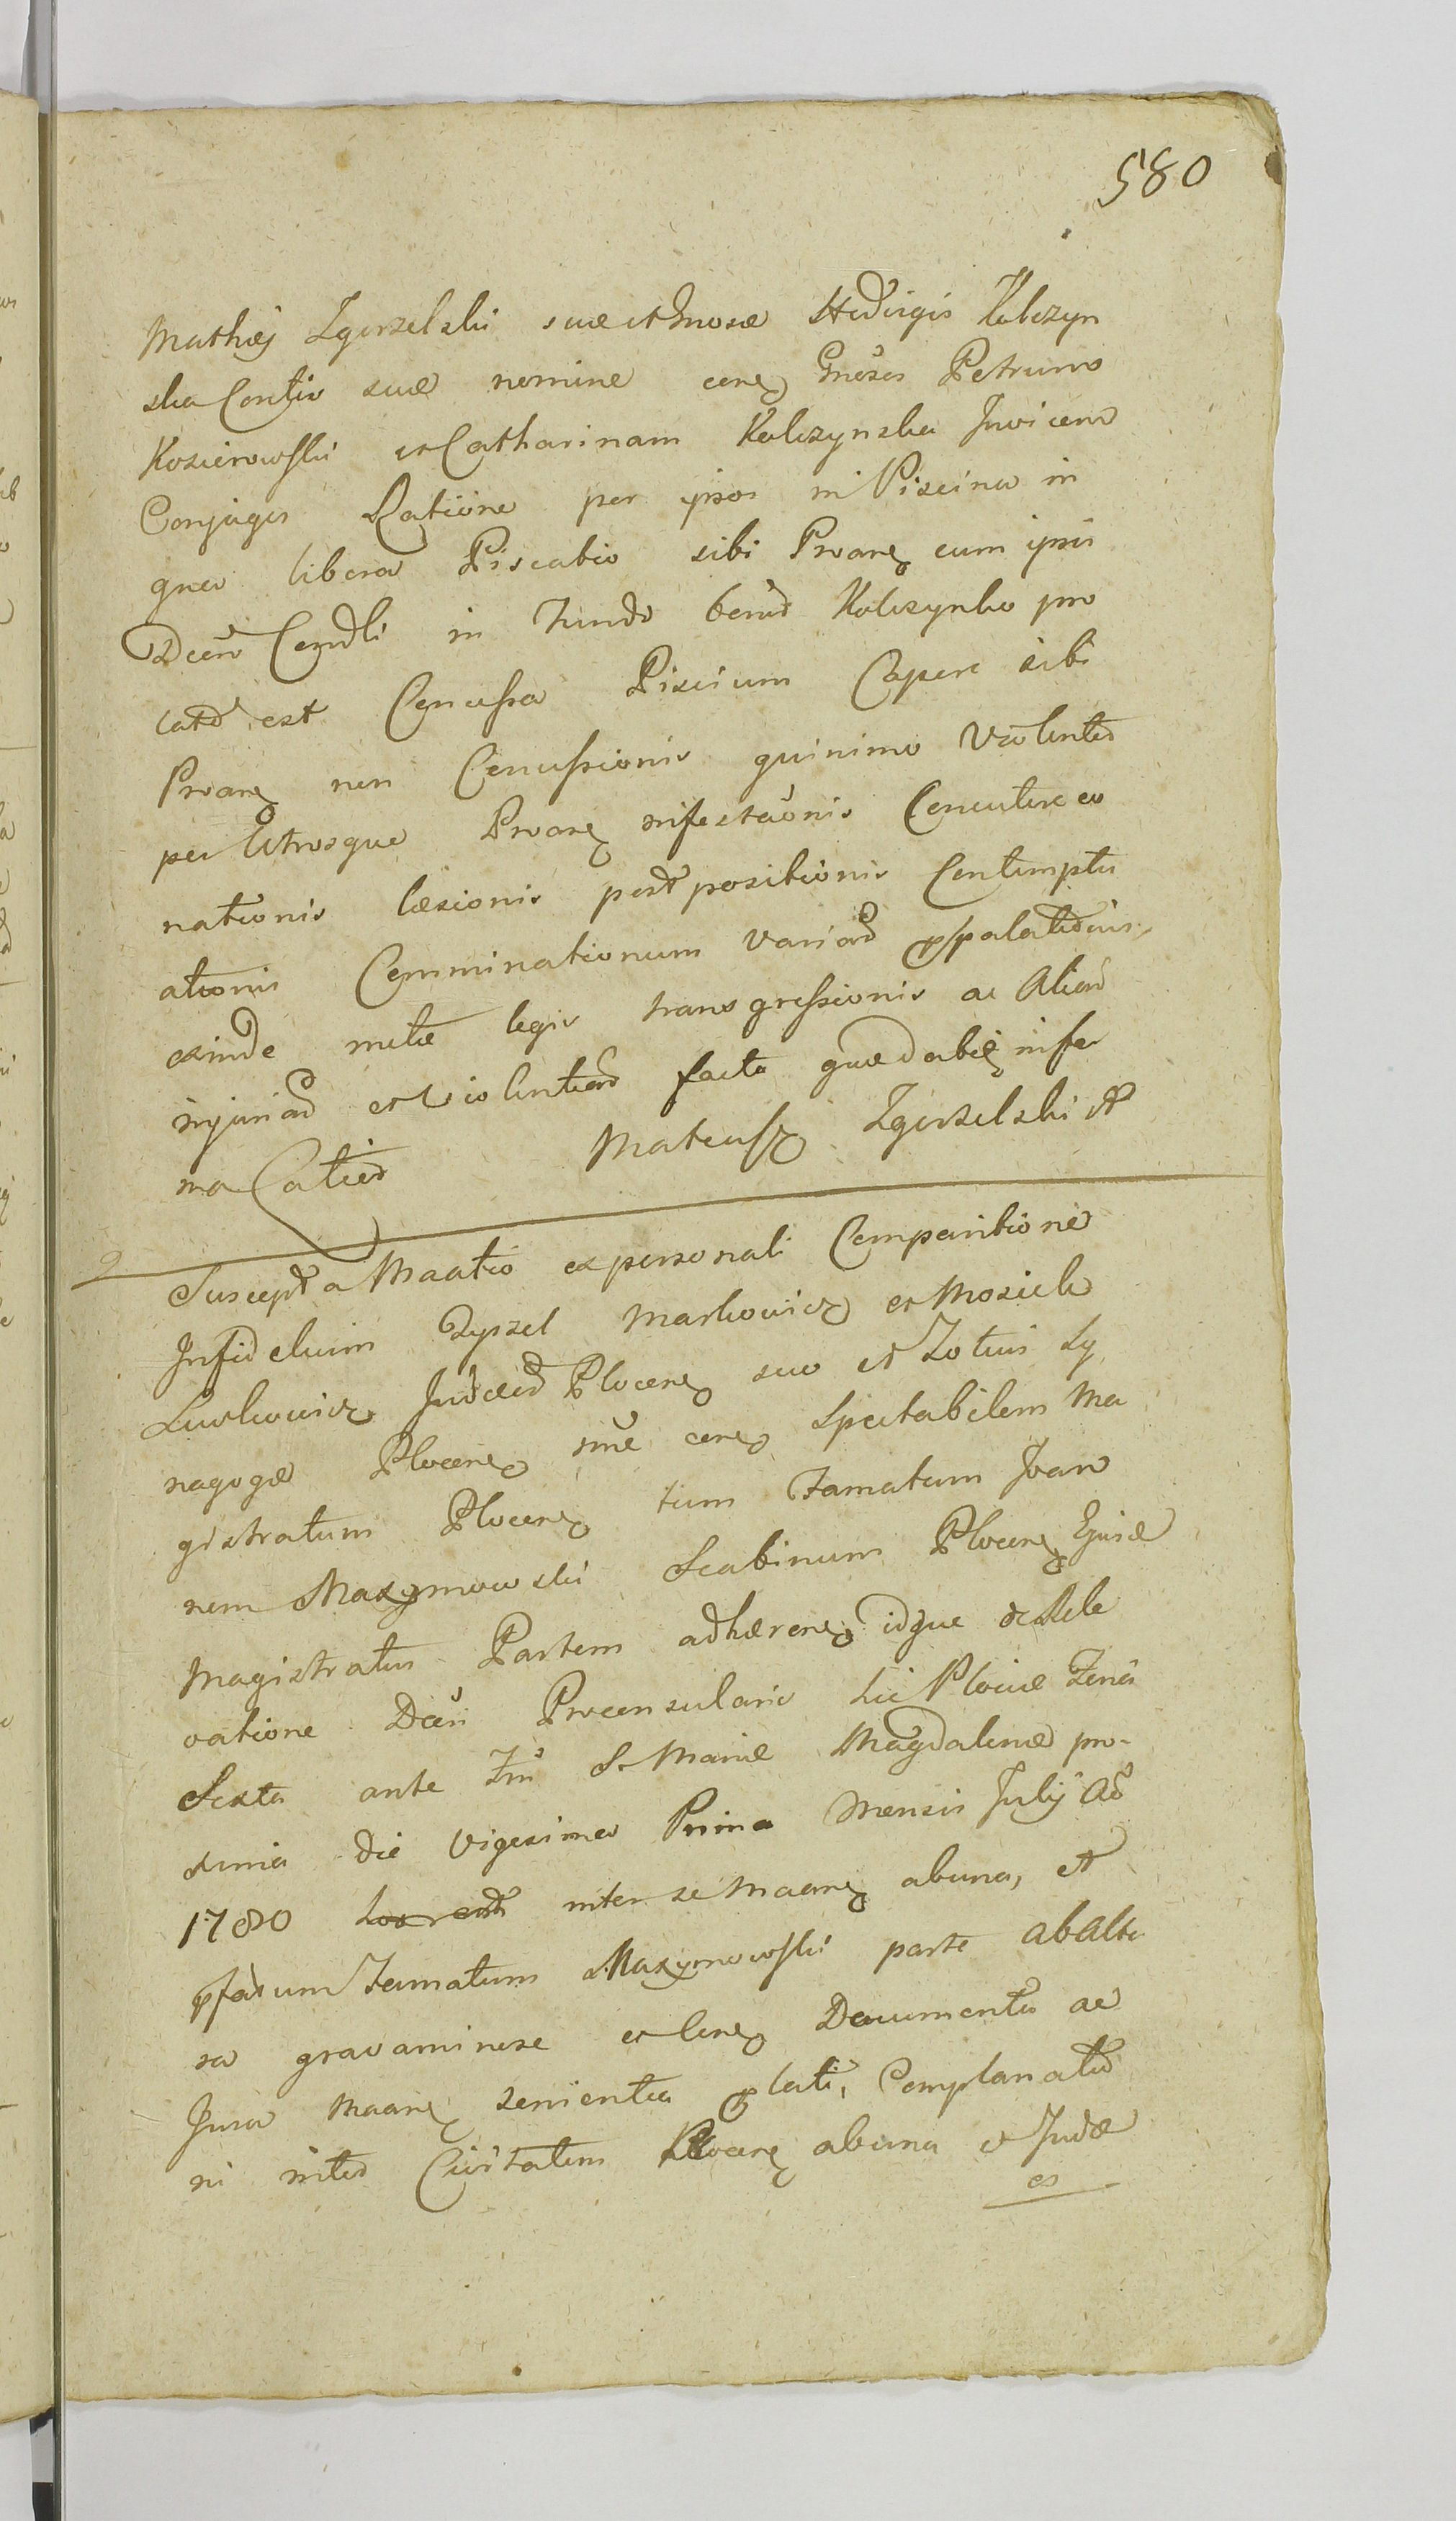 580
Mathæj Zgorzelski suæ et Gnosæ Hedvigis Kolczyn
ska Conthis suæ nomine conz Gnosos Petrum
Kosierowski et Catharinam Kolczynska Invicem
Conjuges Ratione per ipsos in Piscina in
qua libera Piscatio sibi Proanz cum ipsis
Dcen Condli in Fundo bonor Kolczynko pro
cato est Concussa Piscium Capere sibi
Proanz non Concussionis quinimo Violentes
per Utrosque Proanz infestaonis Concutere eo
nationis læsionis post positionis Contemptu
ationis Comminationum variar
exinde legis transgressionis ac Aliar
injuriar et violentiar facta quæ dabit infer
ma Catio Mateusz Zgorzelski
Suscepta Maatio ex personali Comparitione
Infidelium Zyszel Markowicz et Mosiek
Lewkowicz Judæor Plocenz suo et Totius Sy
nagogæ Plocenz nme conz Spectabilem Ma
gistratum Plocenz tum Famatum Joan
nem Maxymowski Scabinum Plocenz Ejusd
Magistratus Partem adhærenz idque ex Rele
vatione Dcen Proconsularis hic Plociæ Feria
Sexta ante Fm S. Mariæ Magdalenæ pro-
xima die vigesima Prima Mensis Julij Ao
1780 inter se Maanz ab una, et
pfatum Famatum Maxymowski parte ab alte
ra gravaminose et Documenta ac
Jura Maanz sententia plati, Complanatio
ni inter Civitatem Plocenz ab una et Judæ
os